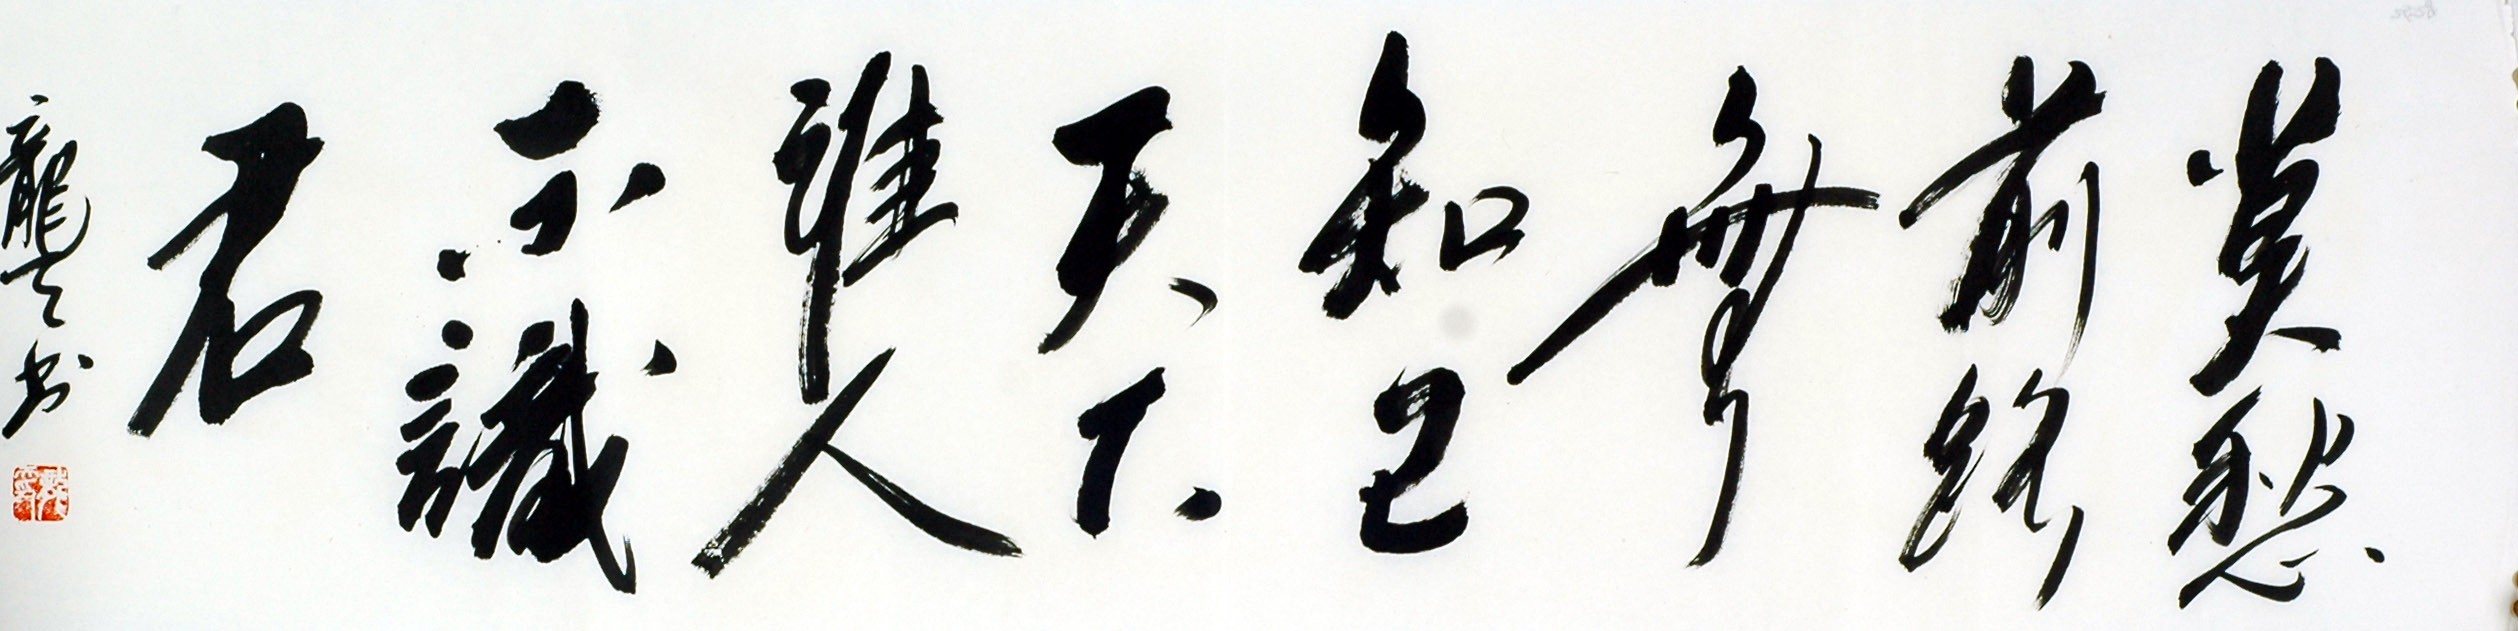 莫愁
前路
無
知己
天下
誰人
不識
君
龔書